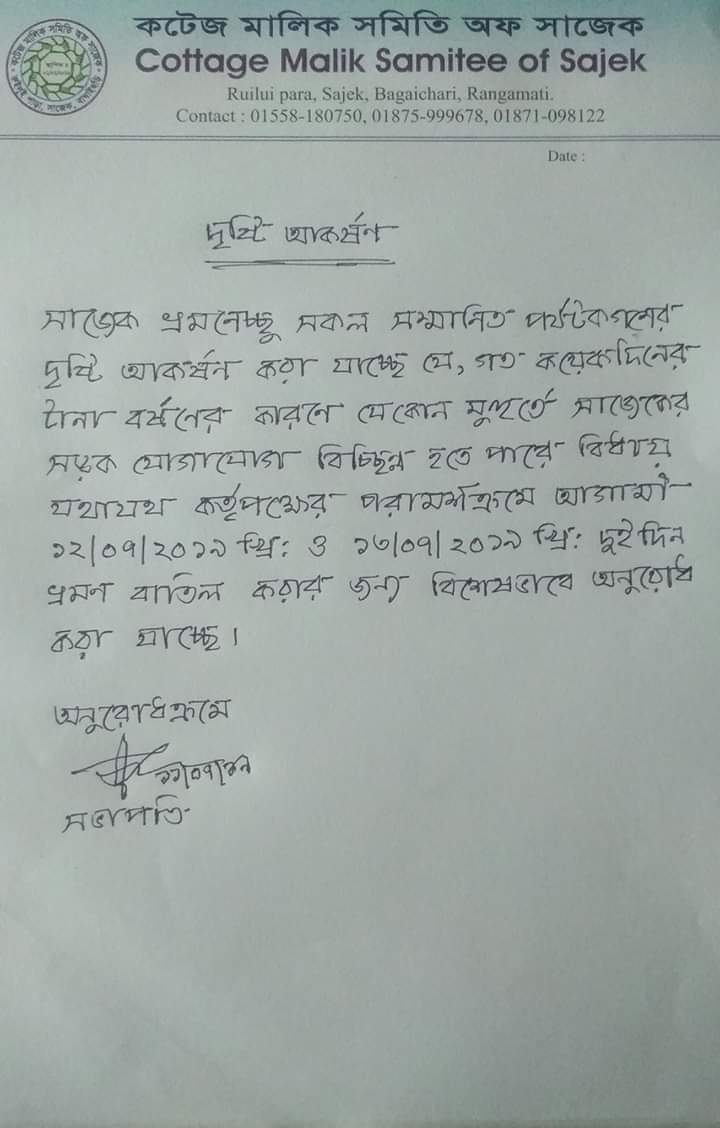 কটেজ মালিক সমিতি অফ সাজেক
Cottage Malik Samitee of Sajek
Ruilui para, Sajek, Bagaichari, Rangamati.
Contact : 01558-180750, 01875-999678, 01871-098122
Date :
দৃষ্টি আকর্ষন
সাজেক ভ্রমনেচ্ছু সকল সম্মানিত পর্যটকগনের
দৃষ্টি আকর্ষন করা যাচ্ছে যে, গত কয়েকদিনের
টানা বর্ষনের কারনে যেকোন মুহুর্তে সাজেকের
সড়ক যোগাযোগ বিচ্ছিন্ন হতে পারে বিধায়
যথাযথ কর্তৃপক্ষের পরামর্শক্রমে আগামী
১২/০৭/২০১৯ খ্রি: ও ১৩/০৭/২০১৯ খ্রি: দুইদিন
ভ্রমণ বাতিল করার জন্য বিশেষভাবে অনুরোধ
করা যাচ্ছে।
অনুরোধক্রমে
১১/০৭/১৯
সভাপতি